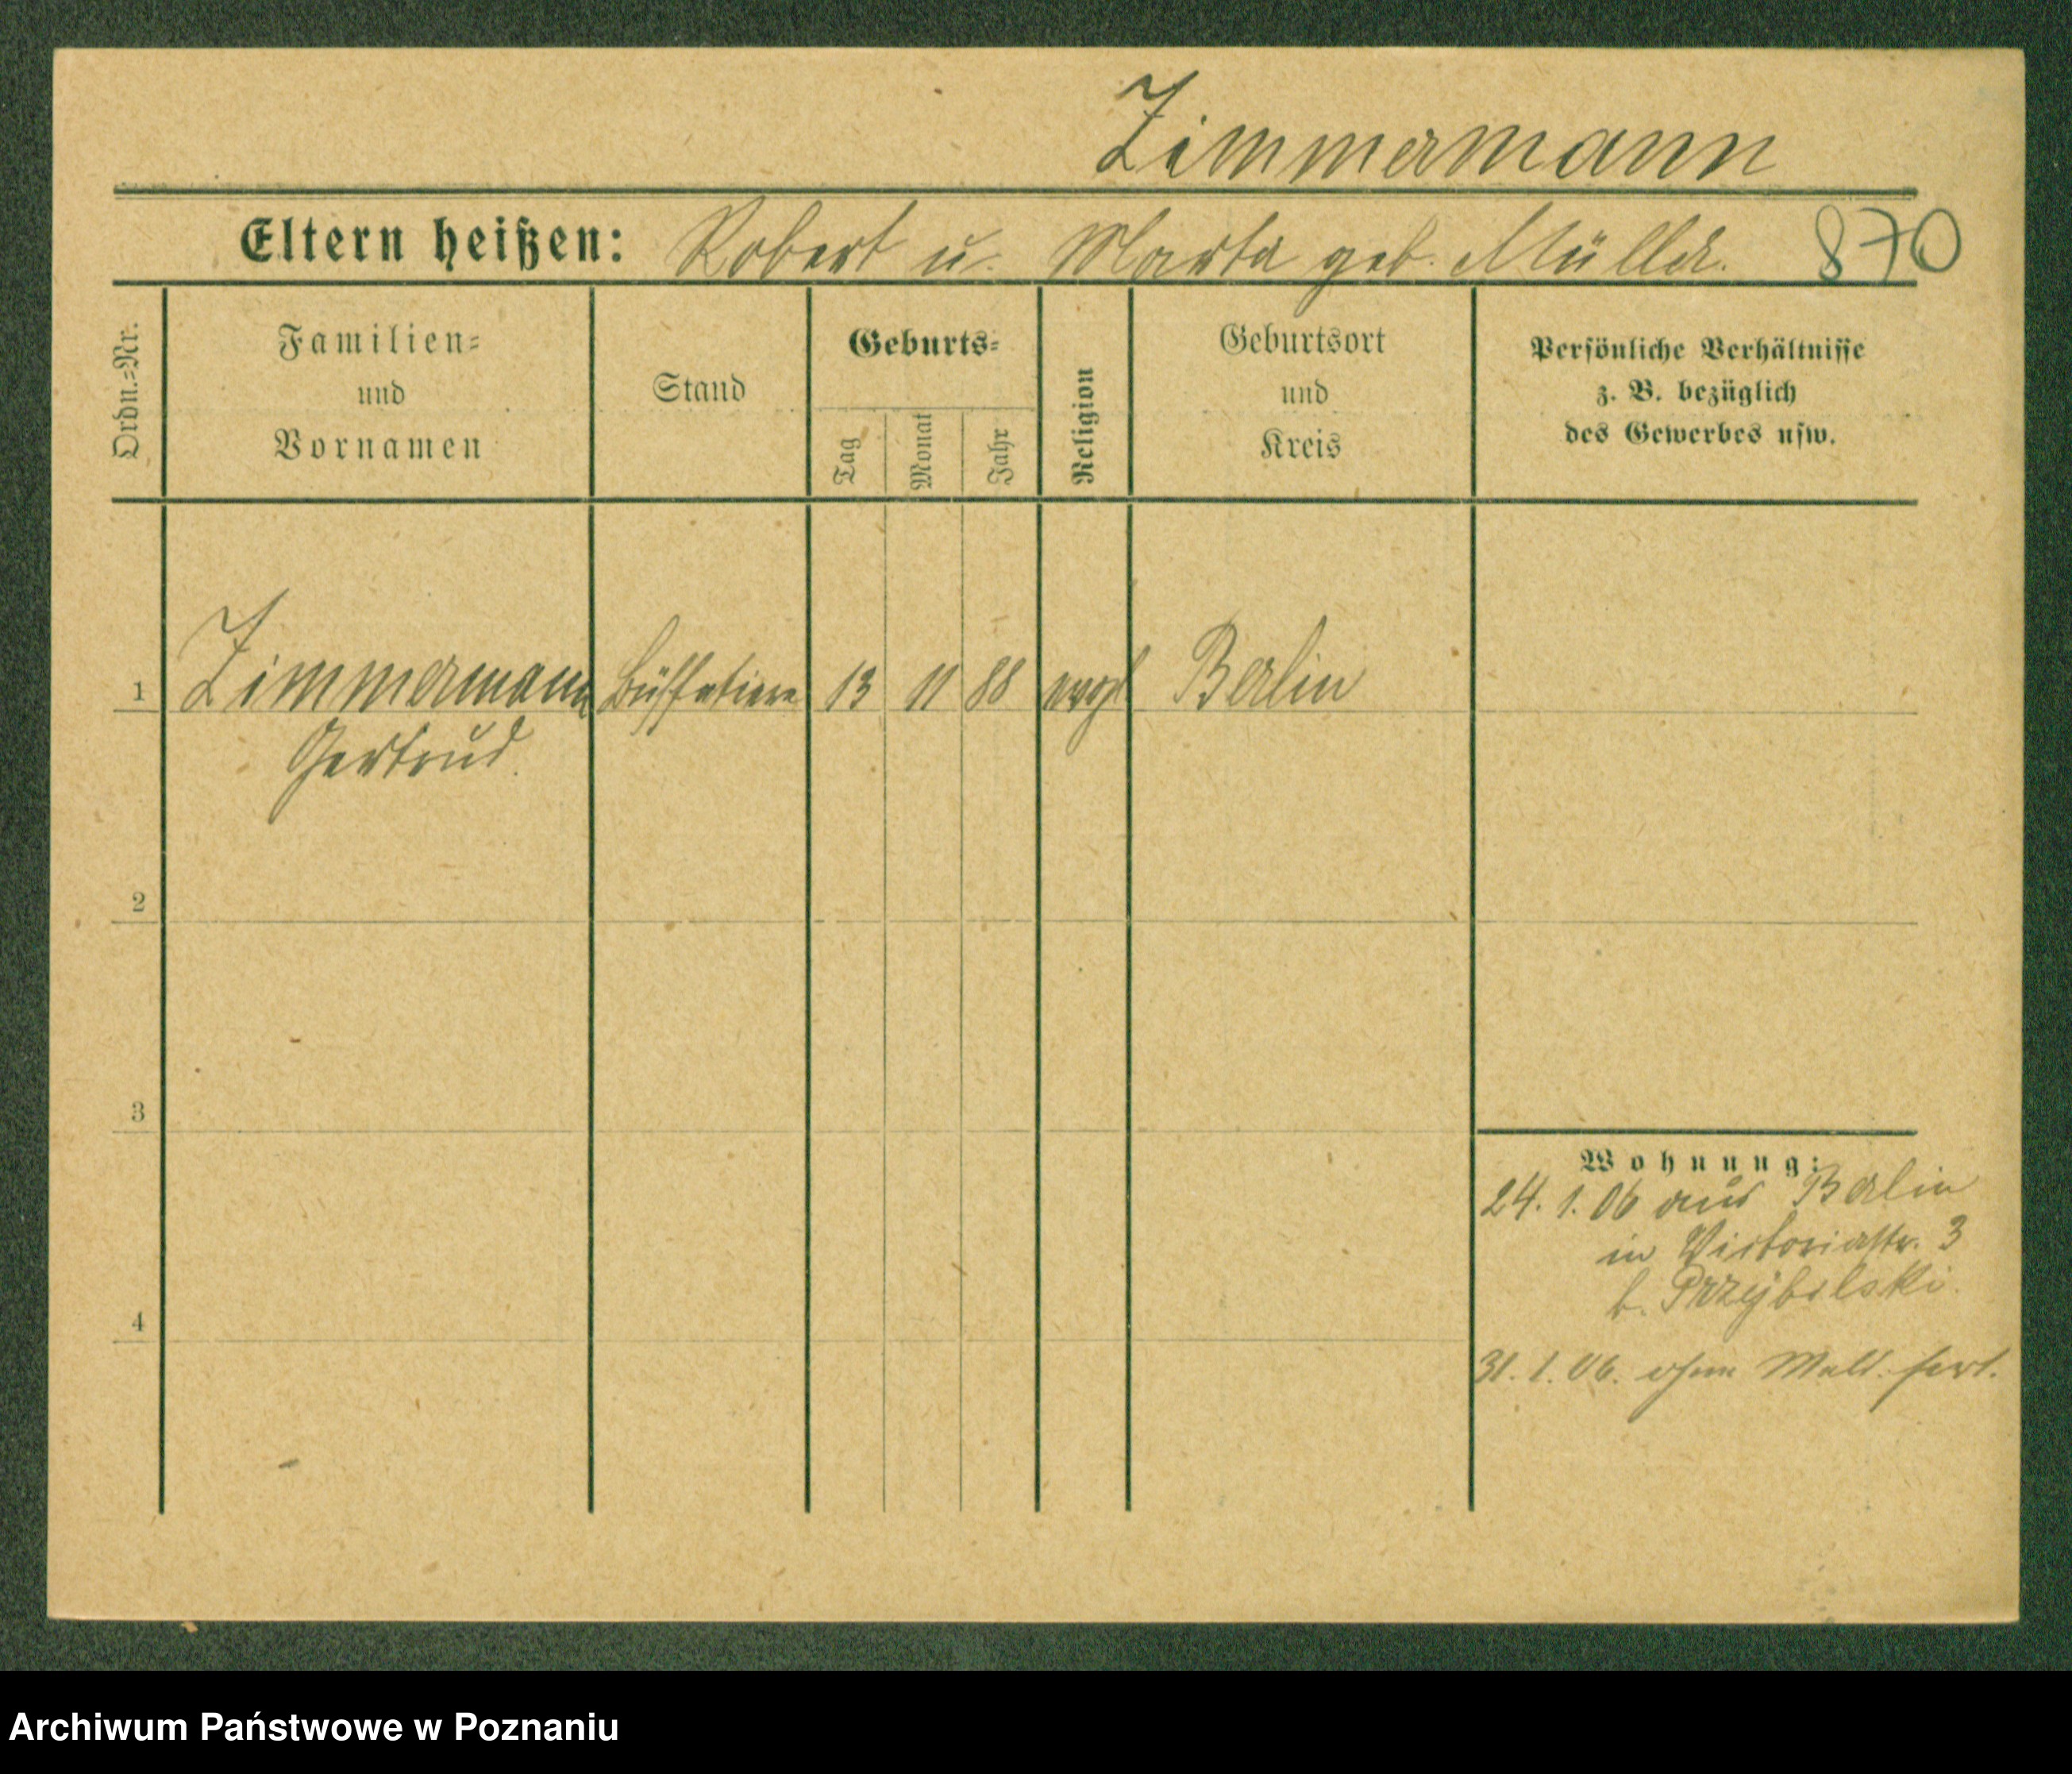 Zimmermann
Eltern heißen: Robert u. Marta geb. Müller. 870
Ordn.=Nr.
Familien=
und
Vornamen
Stand
Geburts=
Tag
Monat
Jahr
Religion
Geburtsort
und
Kreis
Persönliche Verhältnisse
z. B. bezüglich
des Gewerbes usw.
1 Zimmermann Büffetiere 13 11 88 evgl Berlin
Gertrud.
2
3
Wohnung:
24. 1. 06 aus Berlin
in Victoriastr. 3
b. Przybilski.
4
31. 1. 06. ohne Meld. fort.
Archiwum Państwowe w Poznaniu